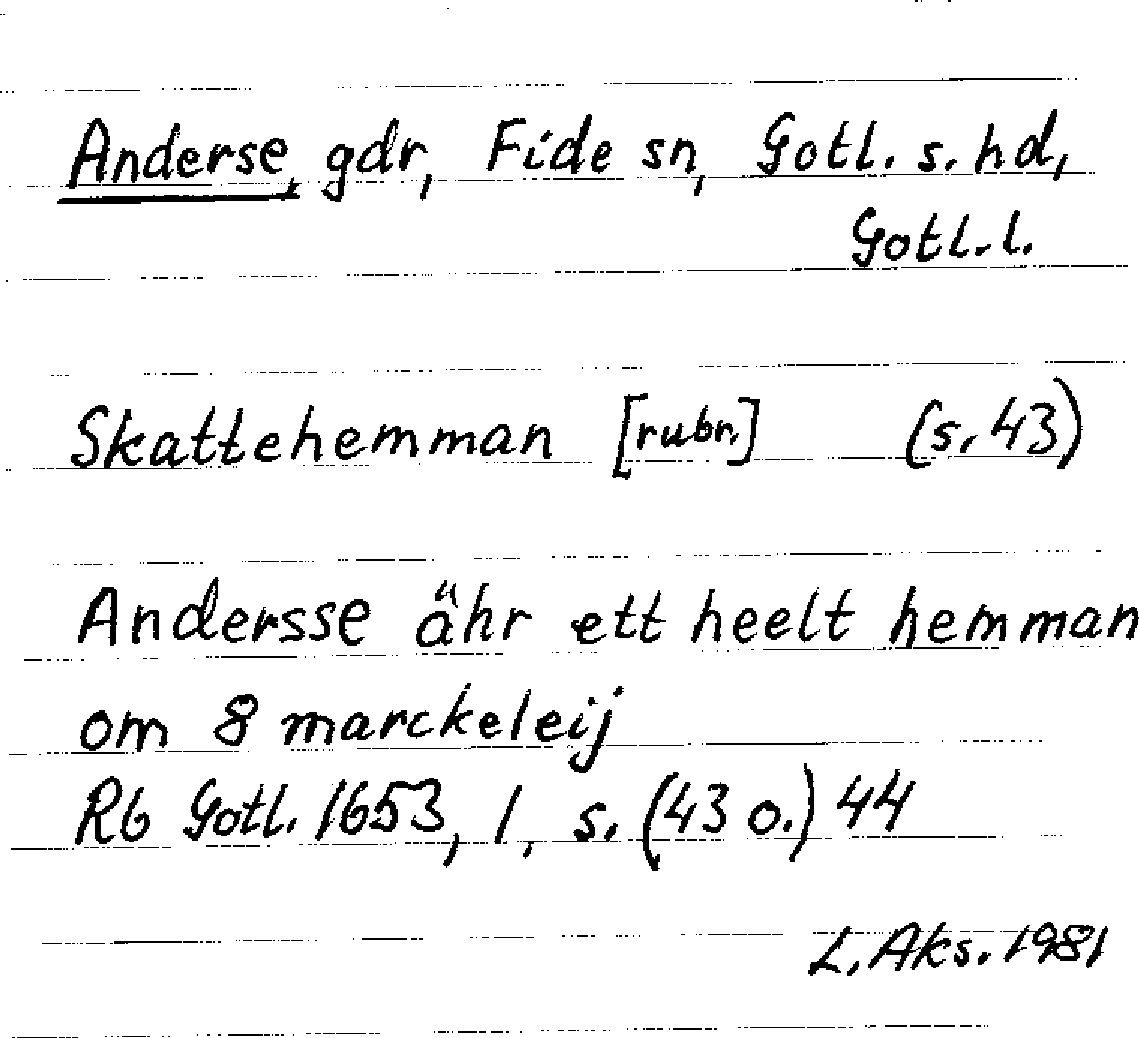 Anderse, gdr, Fide sn, Gotl. s. hd,
Gotl. l.
Skattehemman [rubr.] (s. 43)
Andersse ähr ett heelt hemman
om 8 marckeleij
Rb Gotl. 1653, 1, s. (43 o.) 44
L. Aks. 1981